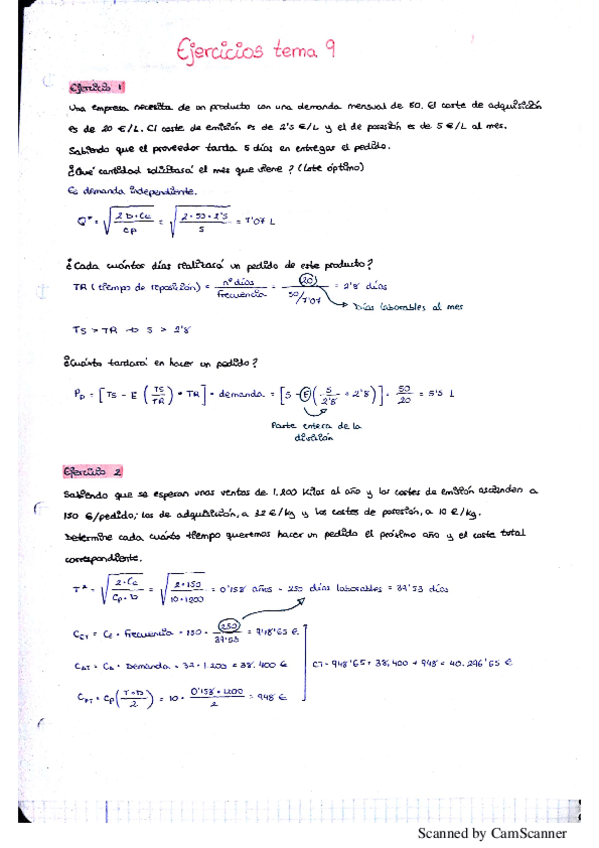 Ejercicios tema 9
Ejercicio 1
Una empresa necesita de un producto con una demanda mensual de 50. El coste de adquisición
es de 20 €/L. El coste de emisión es de 2's €/L y el de posesión es de 5 €/L al mes.
Sabiendo que el proveedor tarda 5 días en entregar el pedido.
¿Qué cantidad solicitará el mes que viene? (Lote óptimo)
Es demanda independiente.
Q* = √(2 D · Ce / Cp) = √(2 · 50 · 2's / 5) = 7'07 L
¿Cada cuántos días realizará un pedido de este producto?
TR (tiempo de reposición) = nº días / frecuencia = 20 / (50/7'07) = 2'8 días
Días laborables al mes
TS > TR → 5 > 2'8
¿Cuánto tardará en hacer un pedido?
Pp = [TS - E (TS/TR) * TR] · demanda = [5 - E (5/2'8 * 2'8)] · 50/20 = 5's L
Parte entera de la
división
Ejercicio 2
Sabiendo que se esperan unas ventas de 1.200 kilos al año y los costes de emisión ascienden a
150 €/pedido; los de adquisición, a 32 €/kg y los costes de posesión, a 10 €/kg.
Determine cada cuánto tiempo queremos hacer un pedido el próximo año y el coste total
correspondiente.
T* = √(2 · Ce / Cp · D) = √(2 · 150 / 10 · 1200) = 0'158 años - 250 días laborables = 39'53 días
CET = Ce · frecuencia = 150 · 250 / 39'53 = 948'65 €.
CAT = Ca · Demanda = 32 · 1.200 = 38.400 €
CT = 948'65 + 38.400 + 948 = 40.296'65 €.
CPT = Cp (T·D / 2) = 10 · 0'158 · 1200 / 2 = 948 €
Scanned by CamScanner